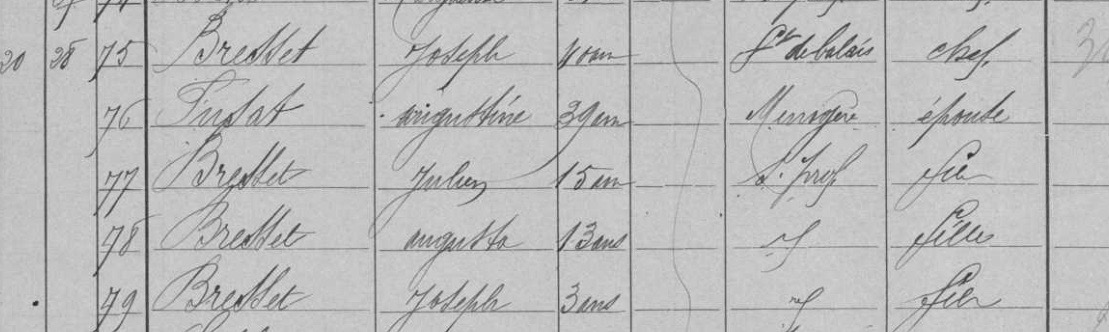 20 28 75 Bresset Joseph 40 ans Ft de balais chef
76 augustine 39 ans Menagère épouse
77 Bresset Julien 15 ans S. prof fils
78 Bresset augusta 13 ans filles
79 Bresset Joseph 3 ans fils